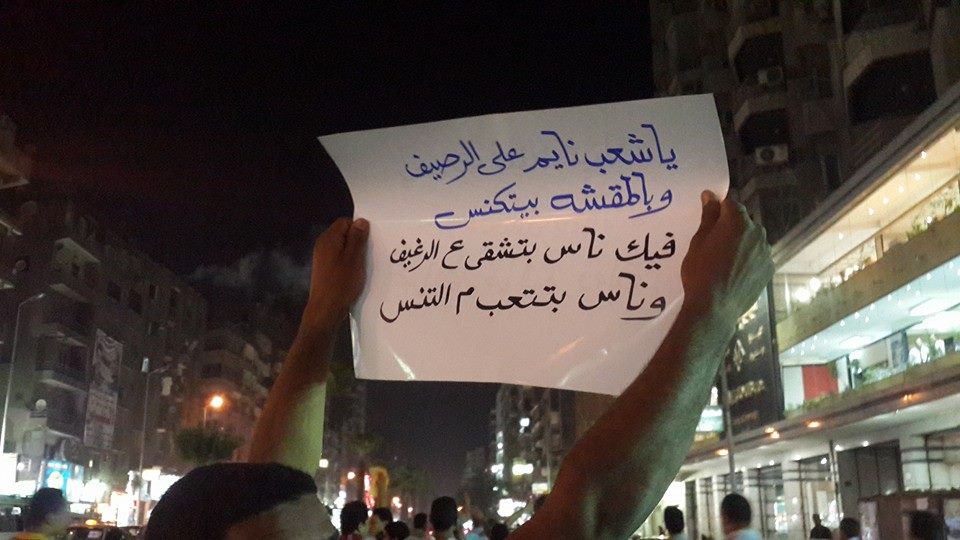 ياشعب نايم على الرصيف
وبالمقشه بيتكنس
فيك ناس بتشقى ع الرغيف
وناس بتتعب م التنس